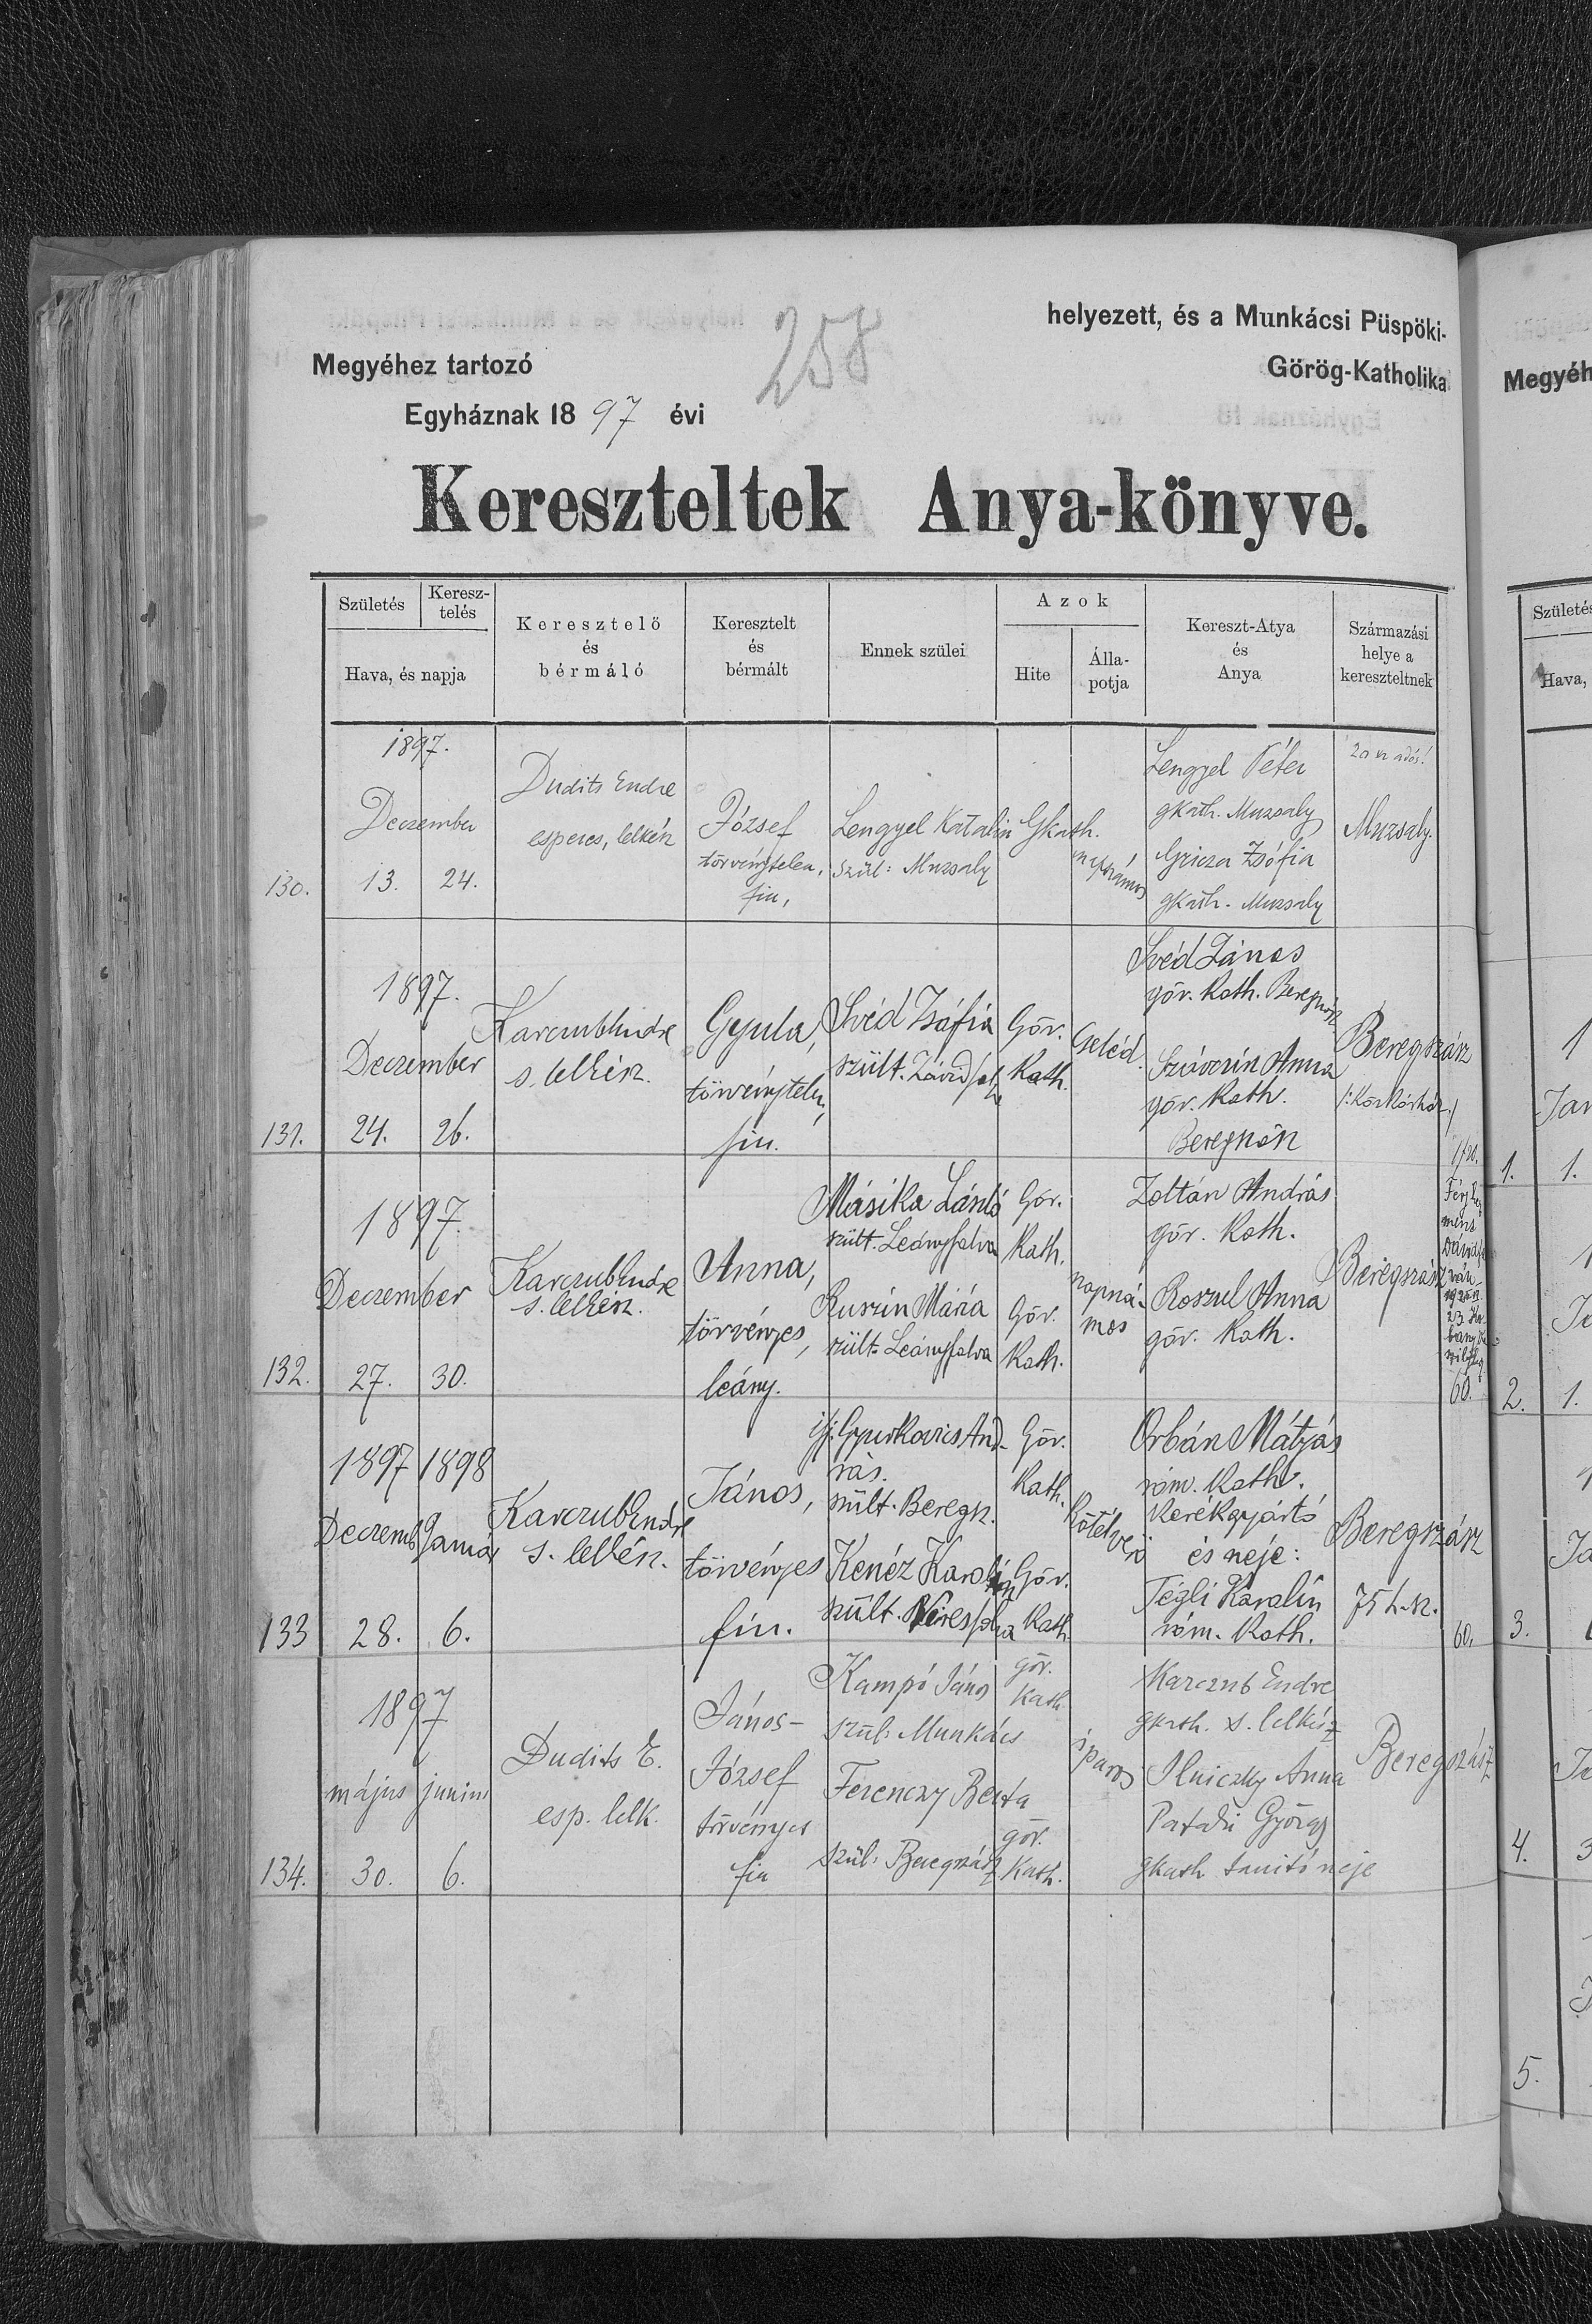 258
helyezett, és a Munkácsi Püspöki-
Megyéhez tartozó
Görög-Katholika
Egyháznak 1897 évi
Kereszteltek Anya-könyve.
Születés
Keresz-
telés
Hava, és napja
Keresztelő
és
bérmáló
Keresztelt
és
bérmált
Ennek szülei
Azok
Hite
Álla-
potja
Kereszt-Atya
és
Anya
Származási
helye a
kereszteltnek
130.
1897.
Deczember
13. 24.
Dudits Endre
esperes, lelkész
József
törvénytelen,
fiu,
Lengyel Katalin
szül: Muzsaly
Gkath.
napszámos
Lengyel Péter
gkath. Muzsaly
Zsófia
gkath. Muzsaly
Muzsaly.
131.
1897.
Deczember
24. 26.
Karczub Endre
s. lelkész.
Gyula,
törvénytelen,
fiu.
Svéd Zsófia
szült.
Gör.
Kath.
Cseléd.
Svéd János
gör. Kath. Beregszász
Anna
gör. Kath.
Beregszász
Beregszász
/:Kórház:/
132.
1897.
Deczember
27. 30.
Karczub Endre
s. lelkész.
Anna,
törvényes,
leány.
Másika László
szült. Leányfalva
Ruszin Mária
szült. Leányfalva
Gör.
Kath.
Gör.
Kath.
napszá-
mos
Zoltán András
gör. Kath.
Roszul Anna
gör. Kath.
Beregszász
60.
133
1897 1898
Deczemb. Január
28. 6.
Karczub Endre
s. lelkész.
János,
törvényes
fiu.
ifj. Gyurkovics And-
rás.
szült. Beregsz.
Kenéz Karolin
szült. Veresfalva
Gör.
Kath.
Gör.
Kath.
Kötélverő
Orbán Mátyás
róm. Kath.
kerékgyártó
és neje:
Tégli Karalin
róm. Kath.
Beregszász
60.
134.
1897
május junius
30. 6.
Dudits E.
esp. lelk.
János-
József
törvényes
fiu
Kampó János
szül: Munkács
Ferenczy Berta
szül: Beregszász
gör.
Kath
gör.
Kath.
iparos
Karczub Endre
gkath. s. lelkész
Ilniczky Anna
Pataki György
gkath tanító neje
Beregszász
Megyéh
Születés
Hava,
1.
1.
2.
1.
3.
4.
3
5.